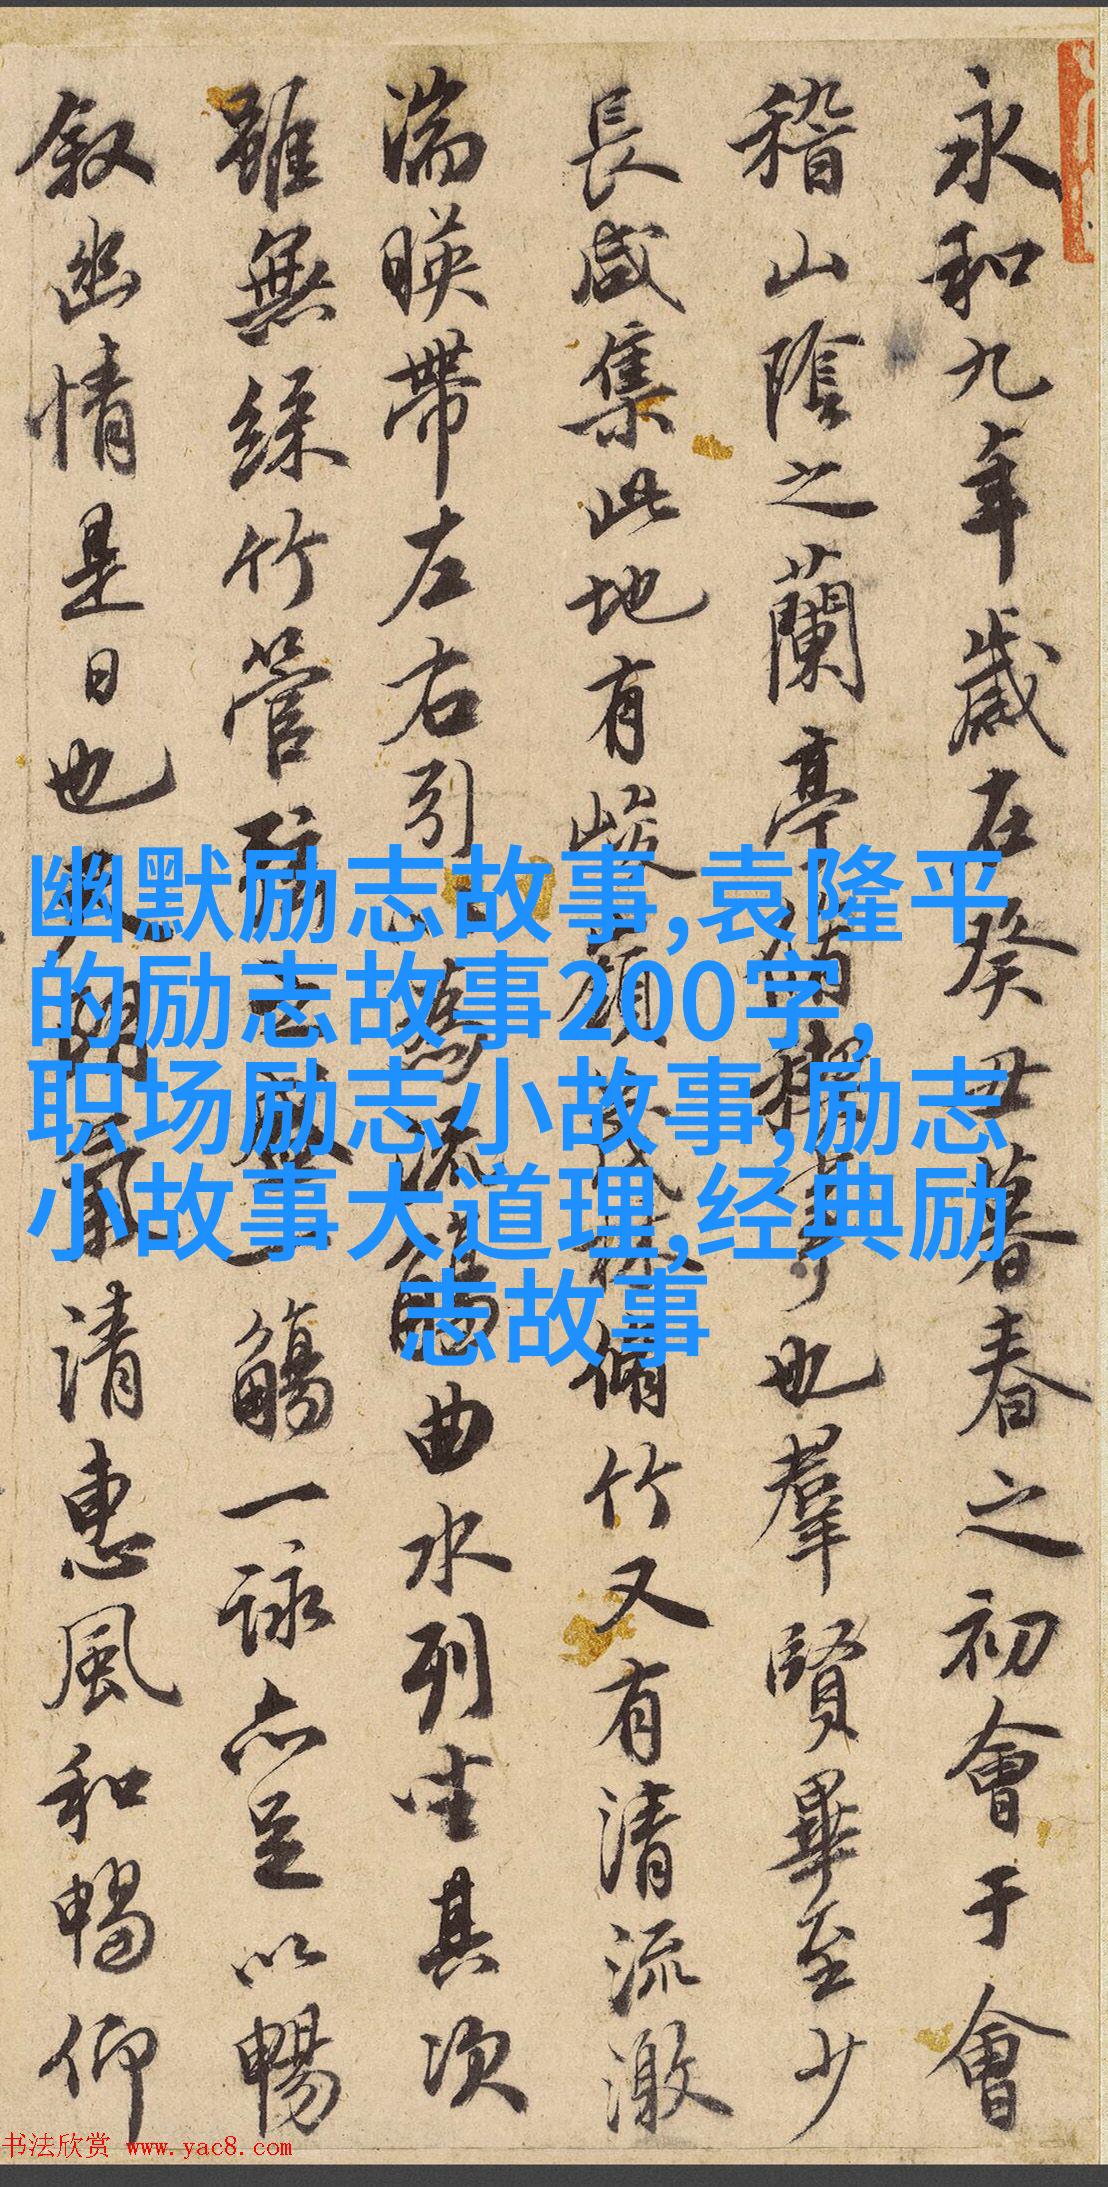 永和九年歲在癸丑暮春之初會于會
稽山陰之蘭亭脩禊事也羣賢畢至少
長咸集此地有峻領茂林脩竹又有清流激
湍暎帶左右引以為流觴曲水列坐其次
雖無絲竹管弦之盛一觴一詠亦足以暢
叙幽情是日也天朗氣清惠風和暢仰
幽默励志故事,袁隆平
的励志故事200字,
职场励志小故事,励志
小故事大道理,经典励
志故事
书法欣赏 www.yac8.com